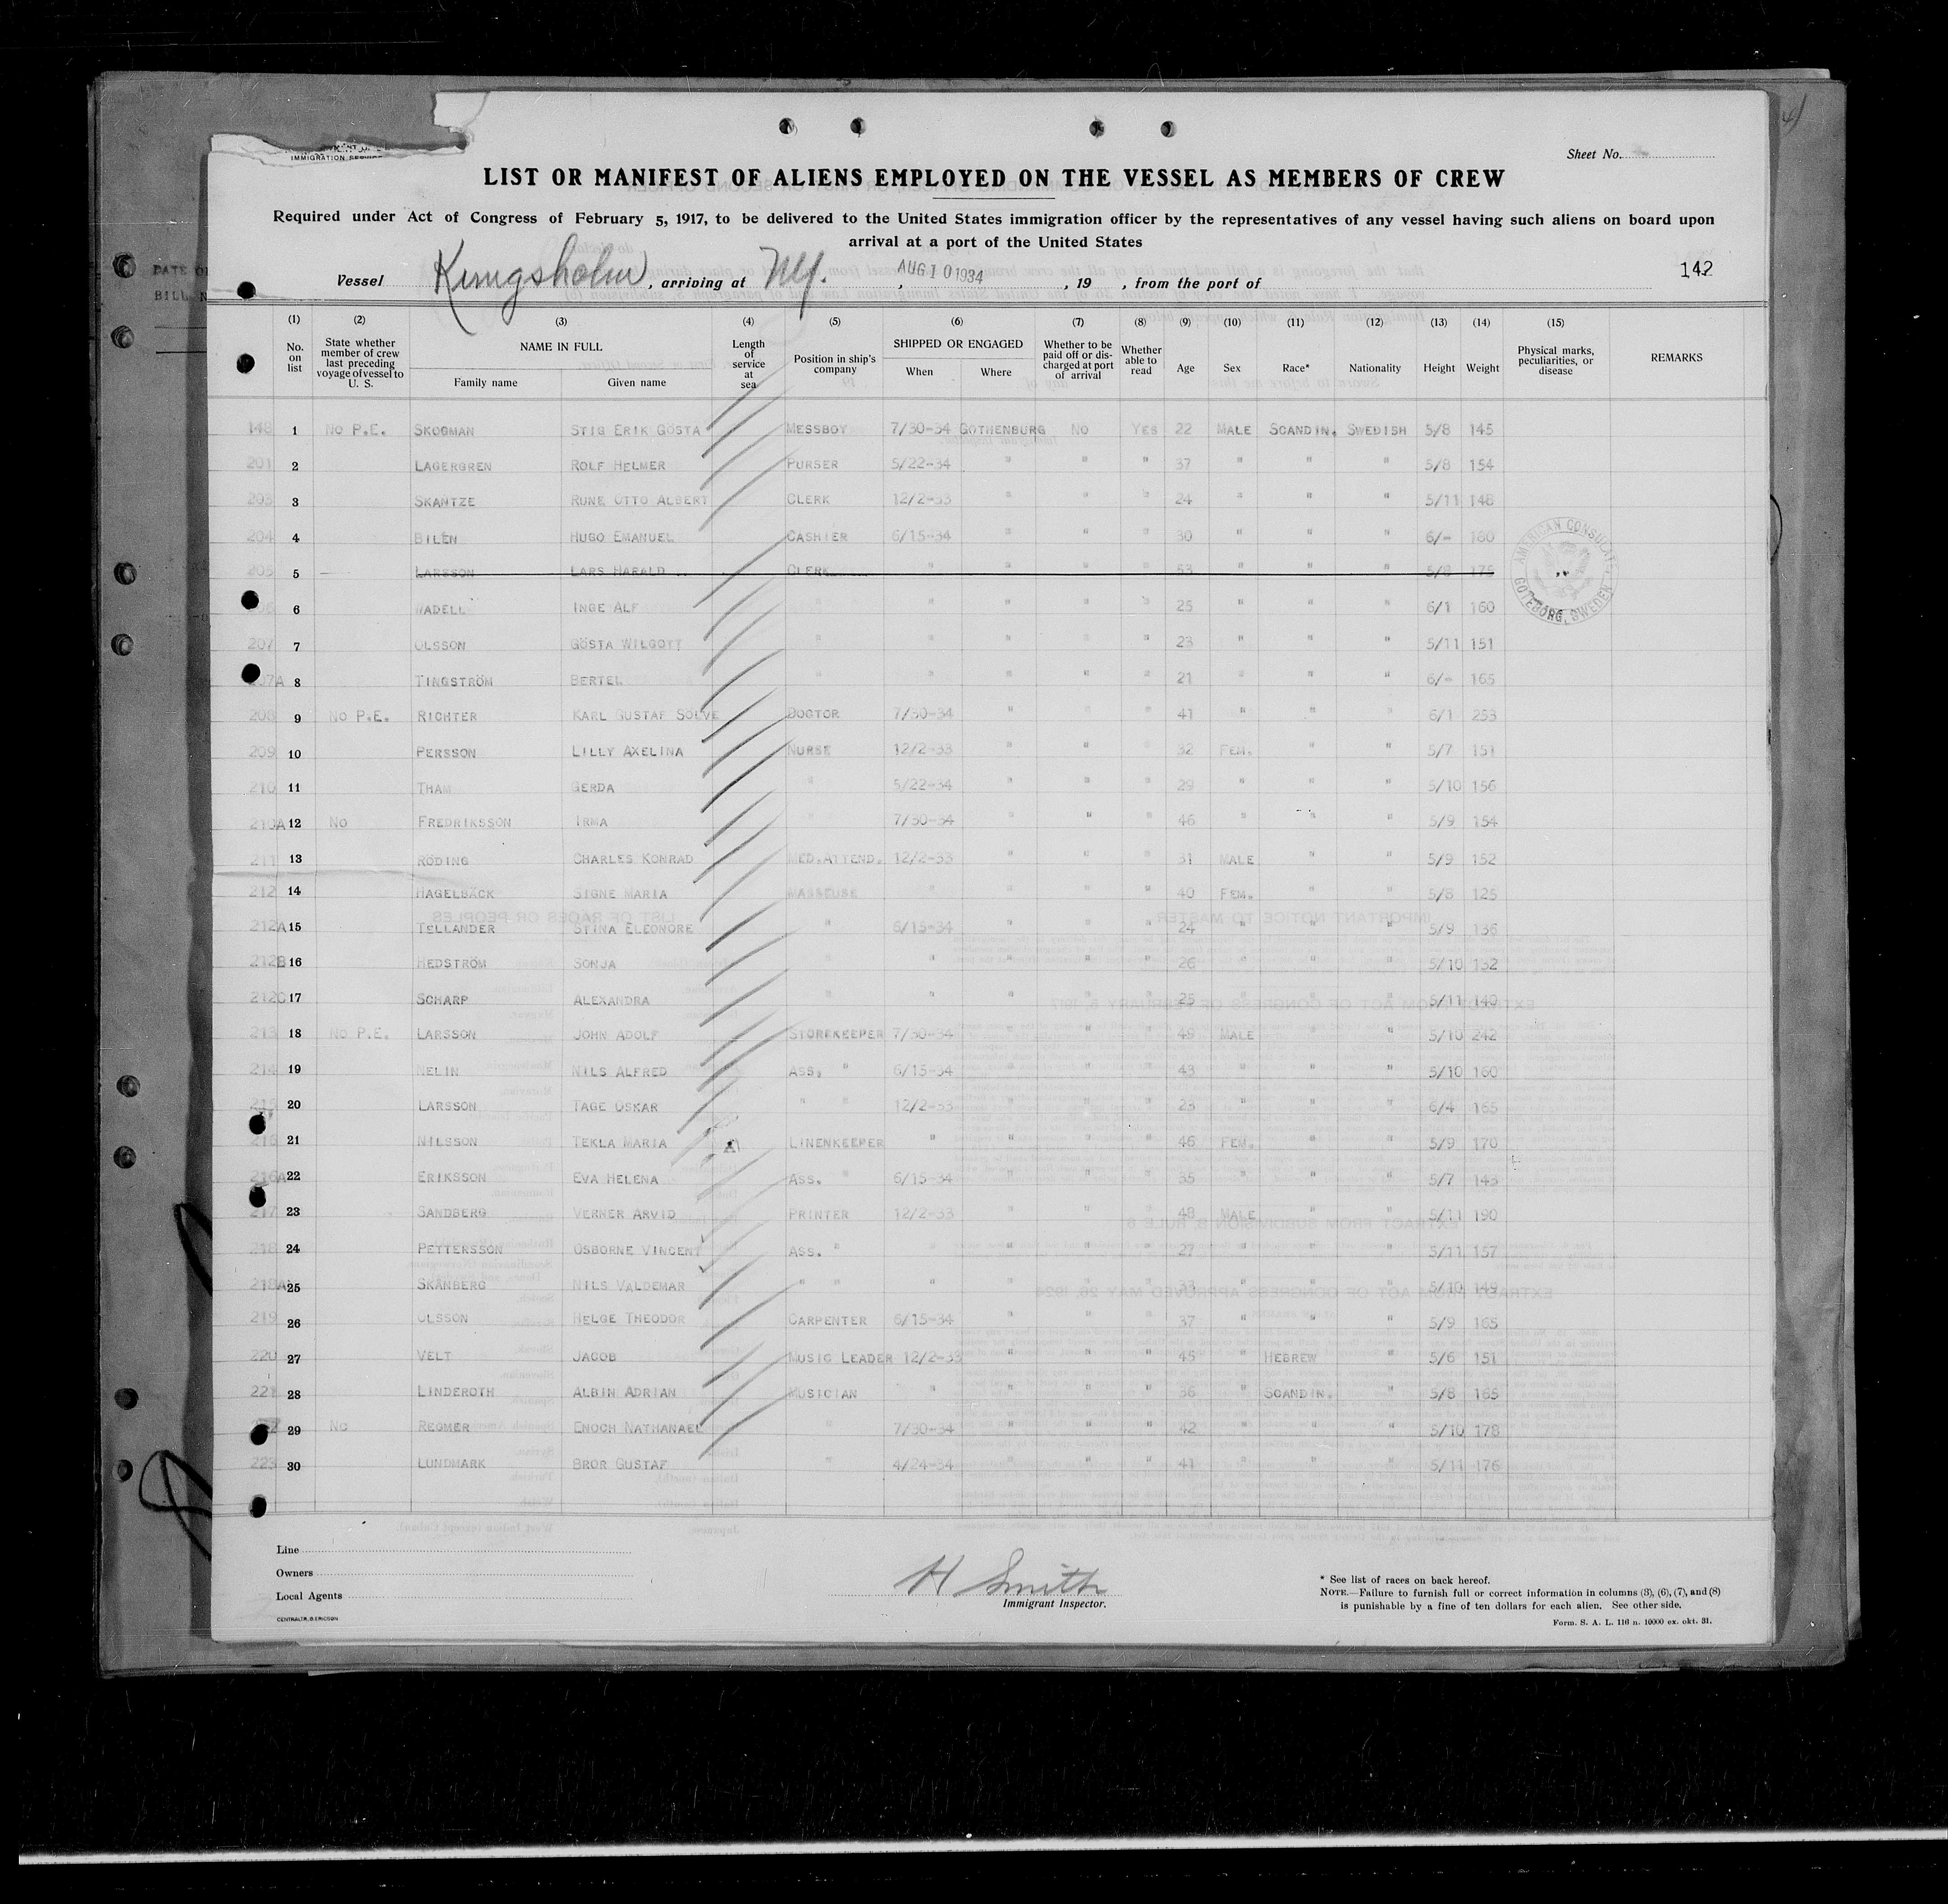 IMMIGRATION SERVICE
Sheet No.
LIST OR MANIFEST OF ALIENS EMPLOYED ON THE VESSEL AS MEMBERS OF CREW
Required under Act of Congress of February 5, 1917, to be delivered to the United States immigration officer by the representatives of any vessel having such aliens on board upon
arrival at a port of the United States
Vessel Kungsholm, arriving at NY. AUG 10 1934, 19 , from the port of 142
(1) (2) (3) (4) (5) (6) (7) (8) (9) (10) (11) (12) (13) (14) (15)
No. on list State whether member of crew last preceding voyage of vessel to U. S. NAME IN FULL Family name Given name Length of service at sea Position in ship's company SHIPPED OR ENGAGED When Where Whether to be paid off or discharged at port of arrival Whether able to read Age Sex Race* Nationality Height Weight Physical marks, peculiarities, or disease REMARKS
148 1 No P.E. SKOGMAN STIG ERIK GÖSTA MESSBOY 7/30-34 GOTHENBURG NO YES 22 MALE SCANDIN. SWEDISH 5/8 145
201 2 LAGERGREN ROLF HELMER PURSER 5/22-34 " " " 37 " " " 5/8 154
203 3 SKANTZE RUNE OTTO ALBERT CLERK 12/2-33 " " " 24 " " " 5/11 148
204 4 BILÉN HUGO EMANUEL CASHIER 6/15-34 " " " 30 " " " 6/- 180
205 5 LARSSON LARS HARALD CLERK " " " " 53 " " " 5/8 175
6 WADELL INGE ALF " " " " " 25 " " " 6/1 160
207 7 OLSSON GÖSTA WILGOTT " " " " " 23 " " " 5/11 151
207A 8 TINGSTRÖM BERTEL " " " " " 21 " " " 6/- 165
208 9 No P.E. RICHTER KARL GUSTAF SÖLVE DOCTOR 7/30-34 " " " 41 " " " 6/1 253
209 10 PERSSON LILLY AXELINA NURSE 12/2-33 " " " 32 FEM. " " 5/7 151
210 11 THAM GERDA " 5/22-34 " " " 29 " " " 5/10 156
210A 12 No FREDRIKSSON IRMA 7/30-34 " " " 46 " " " 5/9 154
211 13 RÖDING CHARLES KONRAD MED.ATTEND. 12/2-33 " " " 31 MALE " " 5/9 152
212 14 HAGELBÄCK SIGNE MARIA MASSEUSE " " " " 40 FEM. " " 5/8 125
212A 15 TELLANDER STINA ELEONORE " 6/15-34 " " " 24 " " " 5/9 136
212B 16 HEDSTRÖM SONJA " " " " " 26 " " " 5/10 132
212C 17 SCHARP ALEXANDRA " " " " " 25 " " " 5/11 140
213 18 No P.E. LARSSON JOHN ADOLF STOREKEEPER 7/30-34 " " " 49 MALE " " 5/10 242
214 19 NELIN NILS ALFRED ASS. " 6/15-34 " " " 43 " " " 5/10 160
215 20 LARSSON TAGE OSKAR " " 12/2-33 " " " 23 " " " 6/4 165
216 21 NILSSON TEKLA MARIA LINENKEEPER " " " " 46 FEM. " " 5/9 170
216A 22 ERIKSSON EVA HELENA ASS. " 6/15-34 " " " 35 " " " 5/7 143
217 23 SANDBERG VERNER ARVID PRINTER 12/2-33 " " " 48 MALE " " 5/11 190
218 24 PETTERSSON OSBORNE VINCENT ASS. " " " " " 27 " " " 5/11 157
218A 25 SKÅNBERG NILS VALDEMAR " " " " " " 33 " " " 5/10 149
219 26 OLSSON HELGE THEODOR CARPENTER 6/15-34 " " " 37 " " " 5/9 165
220 27 VELT JACOB MUSIC LEADER 12/2-33 " " " 45 " HEBREW " 5/6 151
221 28 LINDEROTH ALBIN ADRIAN MUSICIAN " " " " 36 " SCANDIN. " 5/8 165
29 No REGMER ENOCH NATHANAEL " 7/30-34 " " " 42 " " " 5/10 178
223 30 LUNDMARK BROR GUSTAF " 4/24-34 " " " 41 " " " 5/11 176
AMERICAN CONSULATE
GOTEBORG, SWEDEN
Line
Owners
Local Agents
CENTRALTR, G. ERICSON
H Smith
Immigrant Inspector.
* See list of races on back hereof.
NOTE.—Failure to furnish full or correct information in columns (3), (6), (7), and (8)
is punishable by a fine of ten dollars for each alien. See other side.
Form. S. A. L. 116 n. 10000 ex. okt. 31.